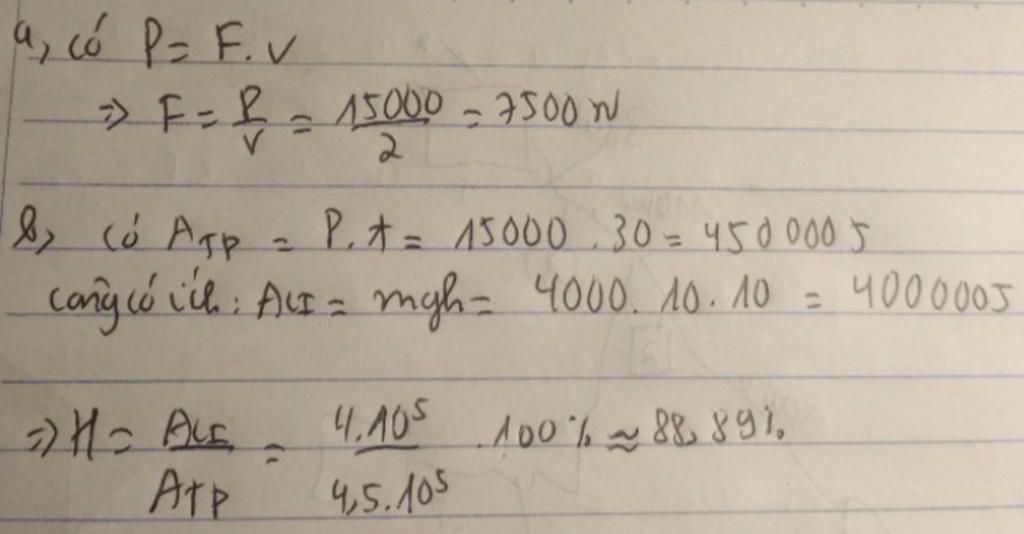 a, có P = F.v
=> F = P/v = 15000/2 = 7500 N
b, có ATP = P.t = 15000 . 30 = 450000J
công có ích: ACI = mgh = 4000. 10. 10 = 400000J
=> H = ACI/ATP = 4.10⁵/4,5.10⁵ .100% ≈ 88,89%